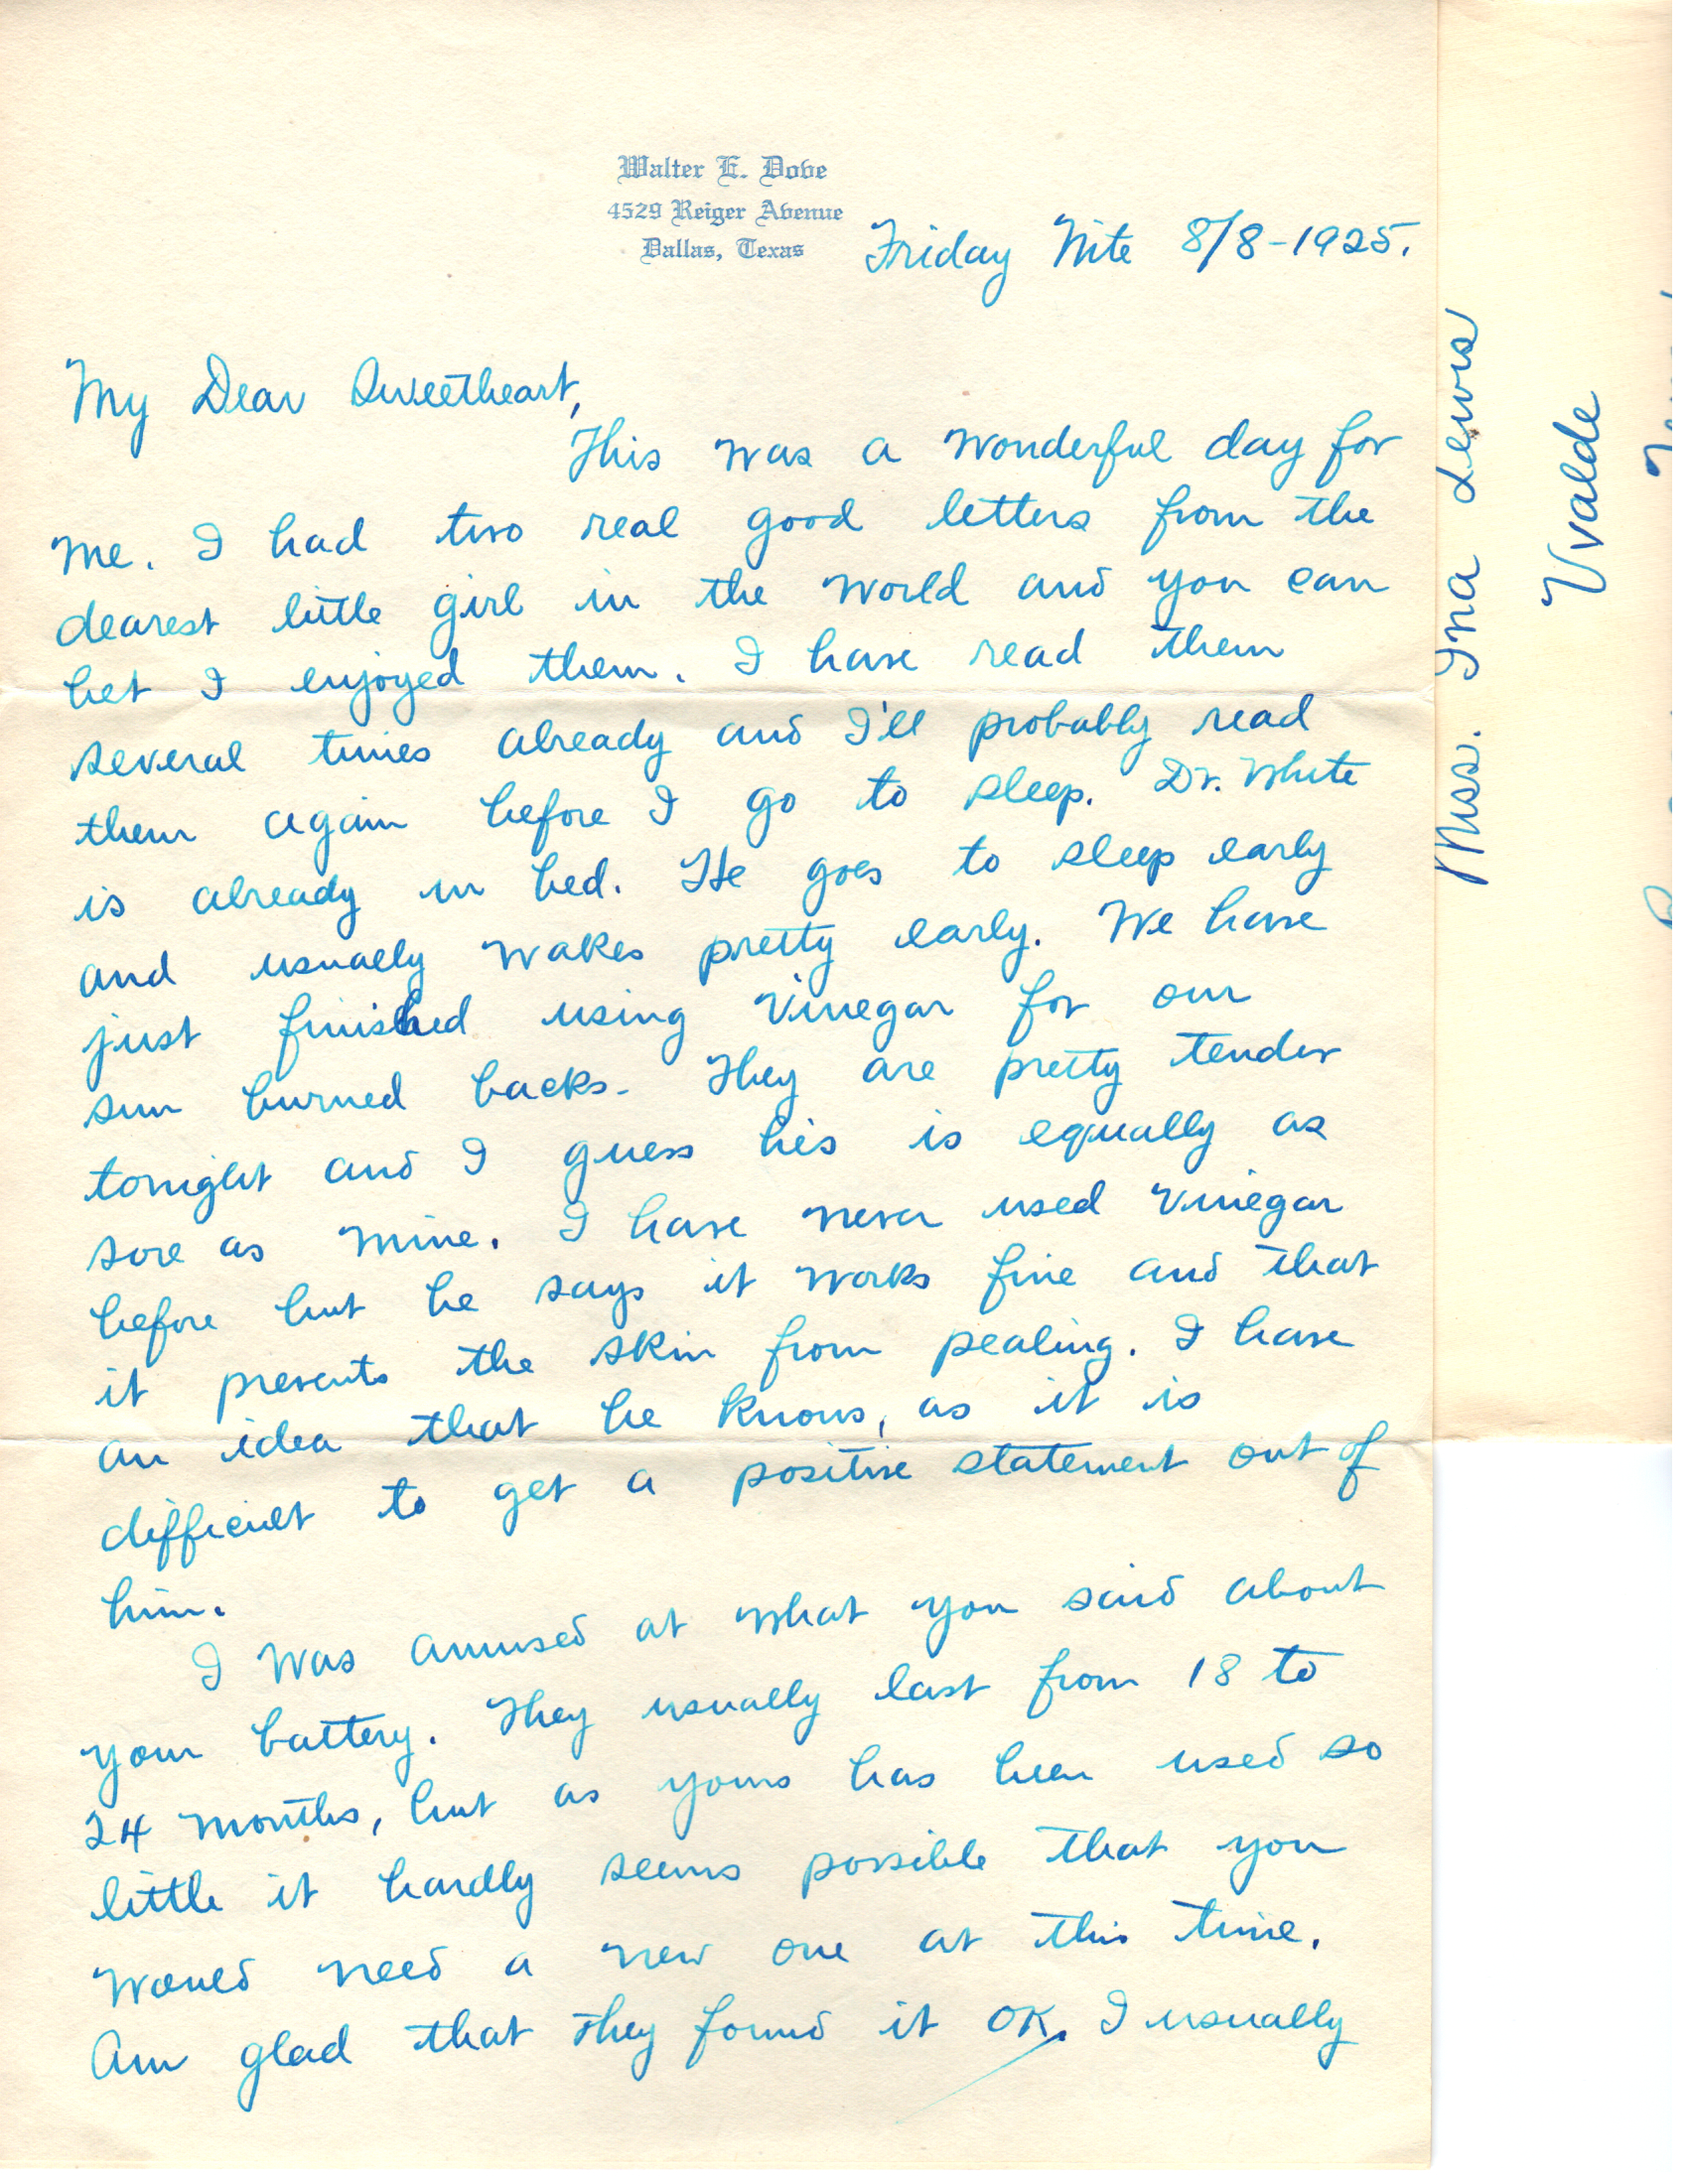 Walter E. Dove
4529 Reiger Avenue
Dallas, Texas
Friday Nite 8/8-1925.
My Dear Sweetheart,
This was a wonderful day for
me. I had two real good letters from the
dearest little girl in the world and you can
bet I enjoyed them. I have read them
several times already and I'll probably read
them again before I go to sleep. Dr. White
is already in bed. He goes to sleep early
and usually wakes pretty early. We have
just finished using vinegar for our
sun burned backs. They are pretty tender
tonight and I guess his is equally as
sore as mine. I have never used vinegar
before but he says it works fine and that
it prevents the skin from pealing. I have
an idea that he knows, as it is
difficult to get a positive statement out of
him.
I was amused at what you said about
your battery. They usually last from 18 to
24 months, but as yours has been used so
little it hardly seems possible that you
would need a new one at this time.
Am glad that they found it OK. I usually
Miss. Ina Lewis
Uvalde